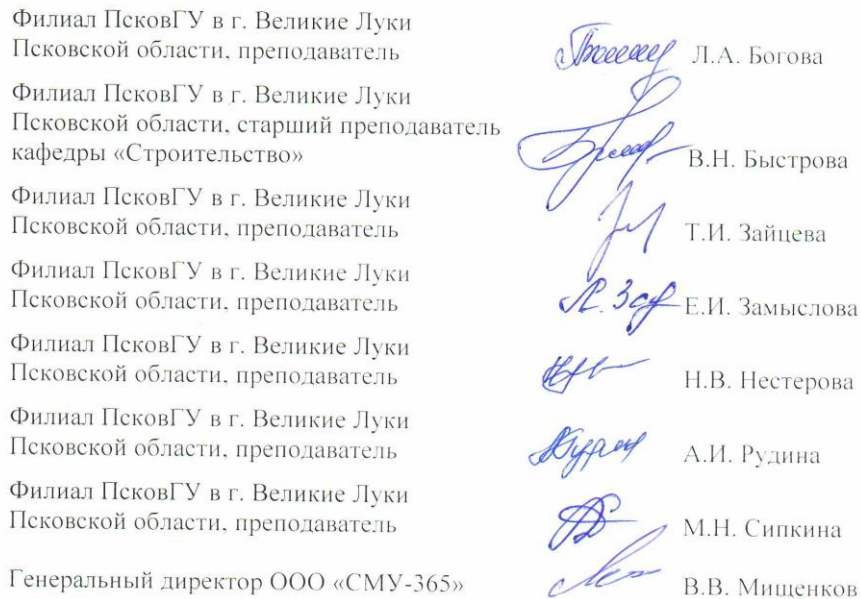 Филиал ПсковГУ в г. Великие Луки
Псковской области, преподаватель Л.А. Богова
Филиал ПсковГУ в г. Великие Луки
Псковской области, старший преподаватель
кафедры «Строительство» В.Н. Быстрова
Филиал ПсковГУ в г. Великие Луки
Псковской области, преподаватель Т.И. Зайцева
Филиал ПсковГУ в г. Великие Луки
Псковской области, преподаватель Е.И. Замыслова
Филиал ПсковГУ в г. Великие Луки
Псковской области, преподаватель Н.В. Нестерова
Филиал ПсковГУ в г. Великие Луки
Псковской области, преподаватель А.И. Рудина
Филиал ПсковГУ в г. Великие Луки
Псковской области, преподаватель М.Н. Сипкина
Генеральный директор ООО «СМУ-365» В.В. Мищенков